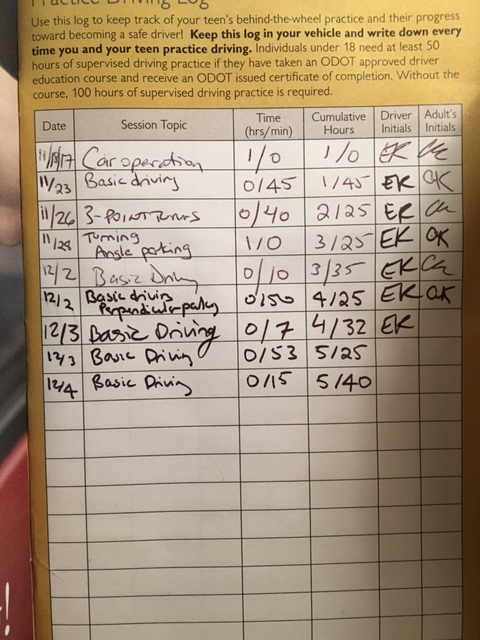 Practice Driving Log
Use this log to keep track of your teen's behind-the-wheel practice and their progress
toward becoming a safe driver! Keep this log in your vehicle and write down every
time you and your teen practice driving. Individuals under 18 need at least 50
hours of supervised driving practice if they have taken an ODOT approved driver
education course and receive an ODOT issued certificate of completion. Without the
course, 100 hours of supervised driving practice is required.
Date Session Topic Time (hrs/min) Cumulative Hours Driver Initials Adult's Initials
Car operation 1/0 1/0 EK
11/23 Basic driving 0/45 1/45 EK CK
11/26 3-POINT TURNS 0/40 2/25 EK
11/28 Turning
Angle parking 1/0 3/25 EK CK
12/2 Basic Driving 0/10 3/35 EK
12/2 Basic driving
Perpendicular parking 0/50 4/25 EK CK
12/3 Basic Driving 0/7 4/32 EK
12/3 Basic Driving 0/53 5/25
12/4 Basic Driving 0/15 5/40
!